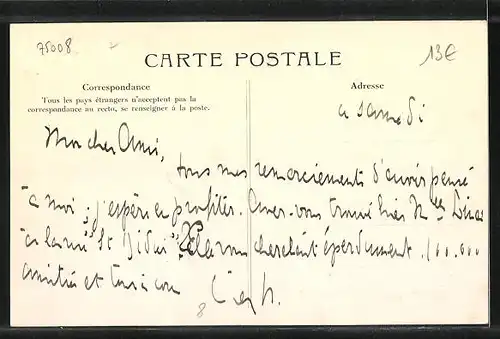 75008
13€
CARTE POSTALE
Correspondance
Tous les pays étrangers n'acceptent pas la
correspondance au recto, se renseigner à la poste.
Adresse
a samedi
Mon cher Ami,
tous mes remerciements d'avoir pensé
à moi. j'espère en profiter. Avez-vous trouvé hier
à la rue St Didier cherchant éperdument. 100.000
amitiés et
8